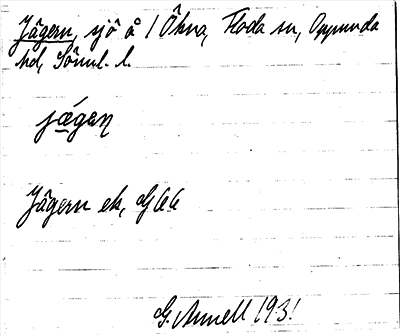 Jägern, sjö å / Ökna, Floda sn, Oppunda
hd, Sörml. l.
jägeṇ
Jägern ek, G 66
G. Annell 1931